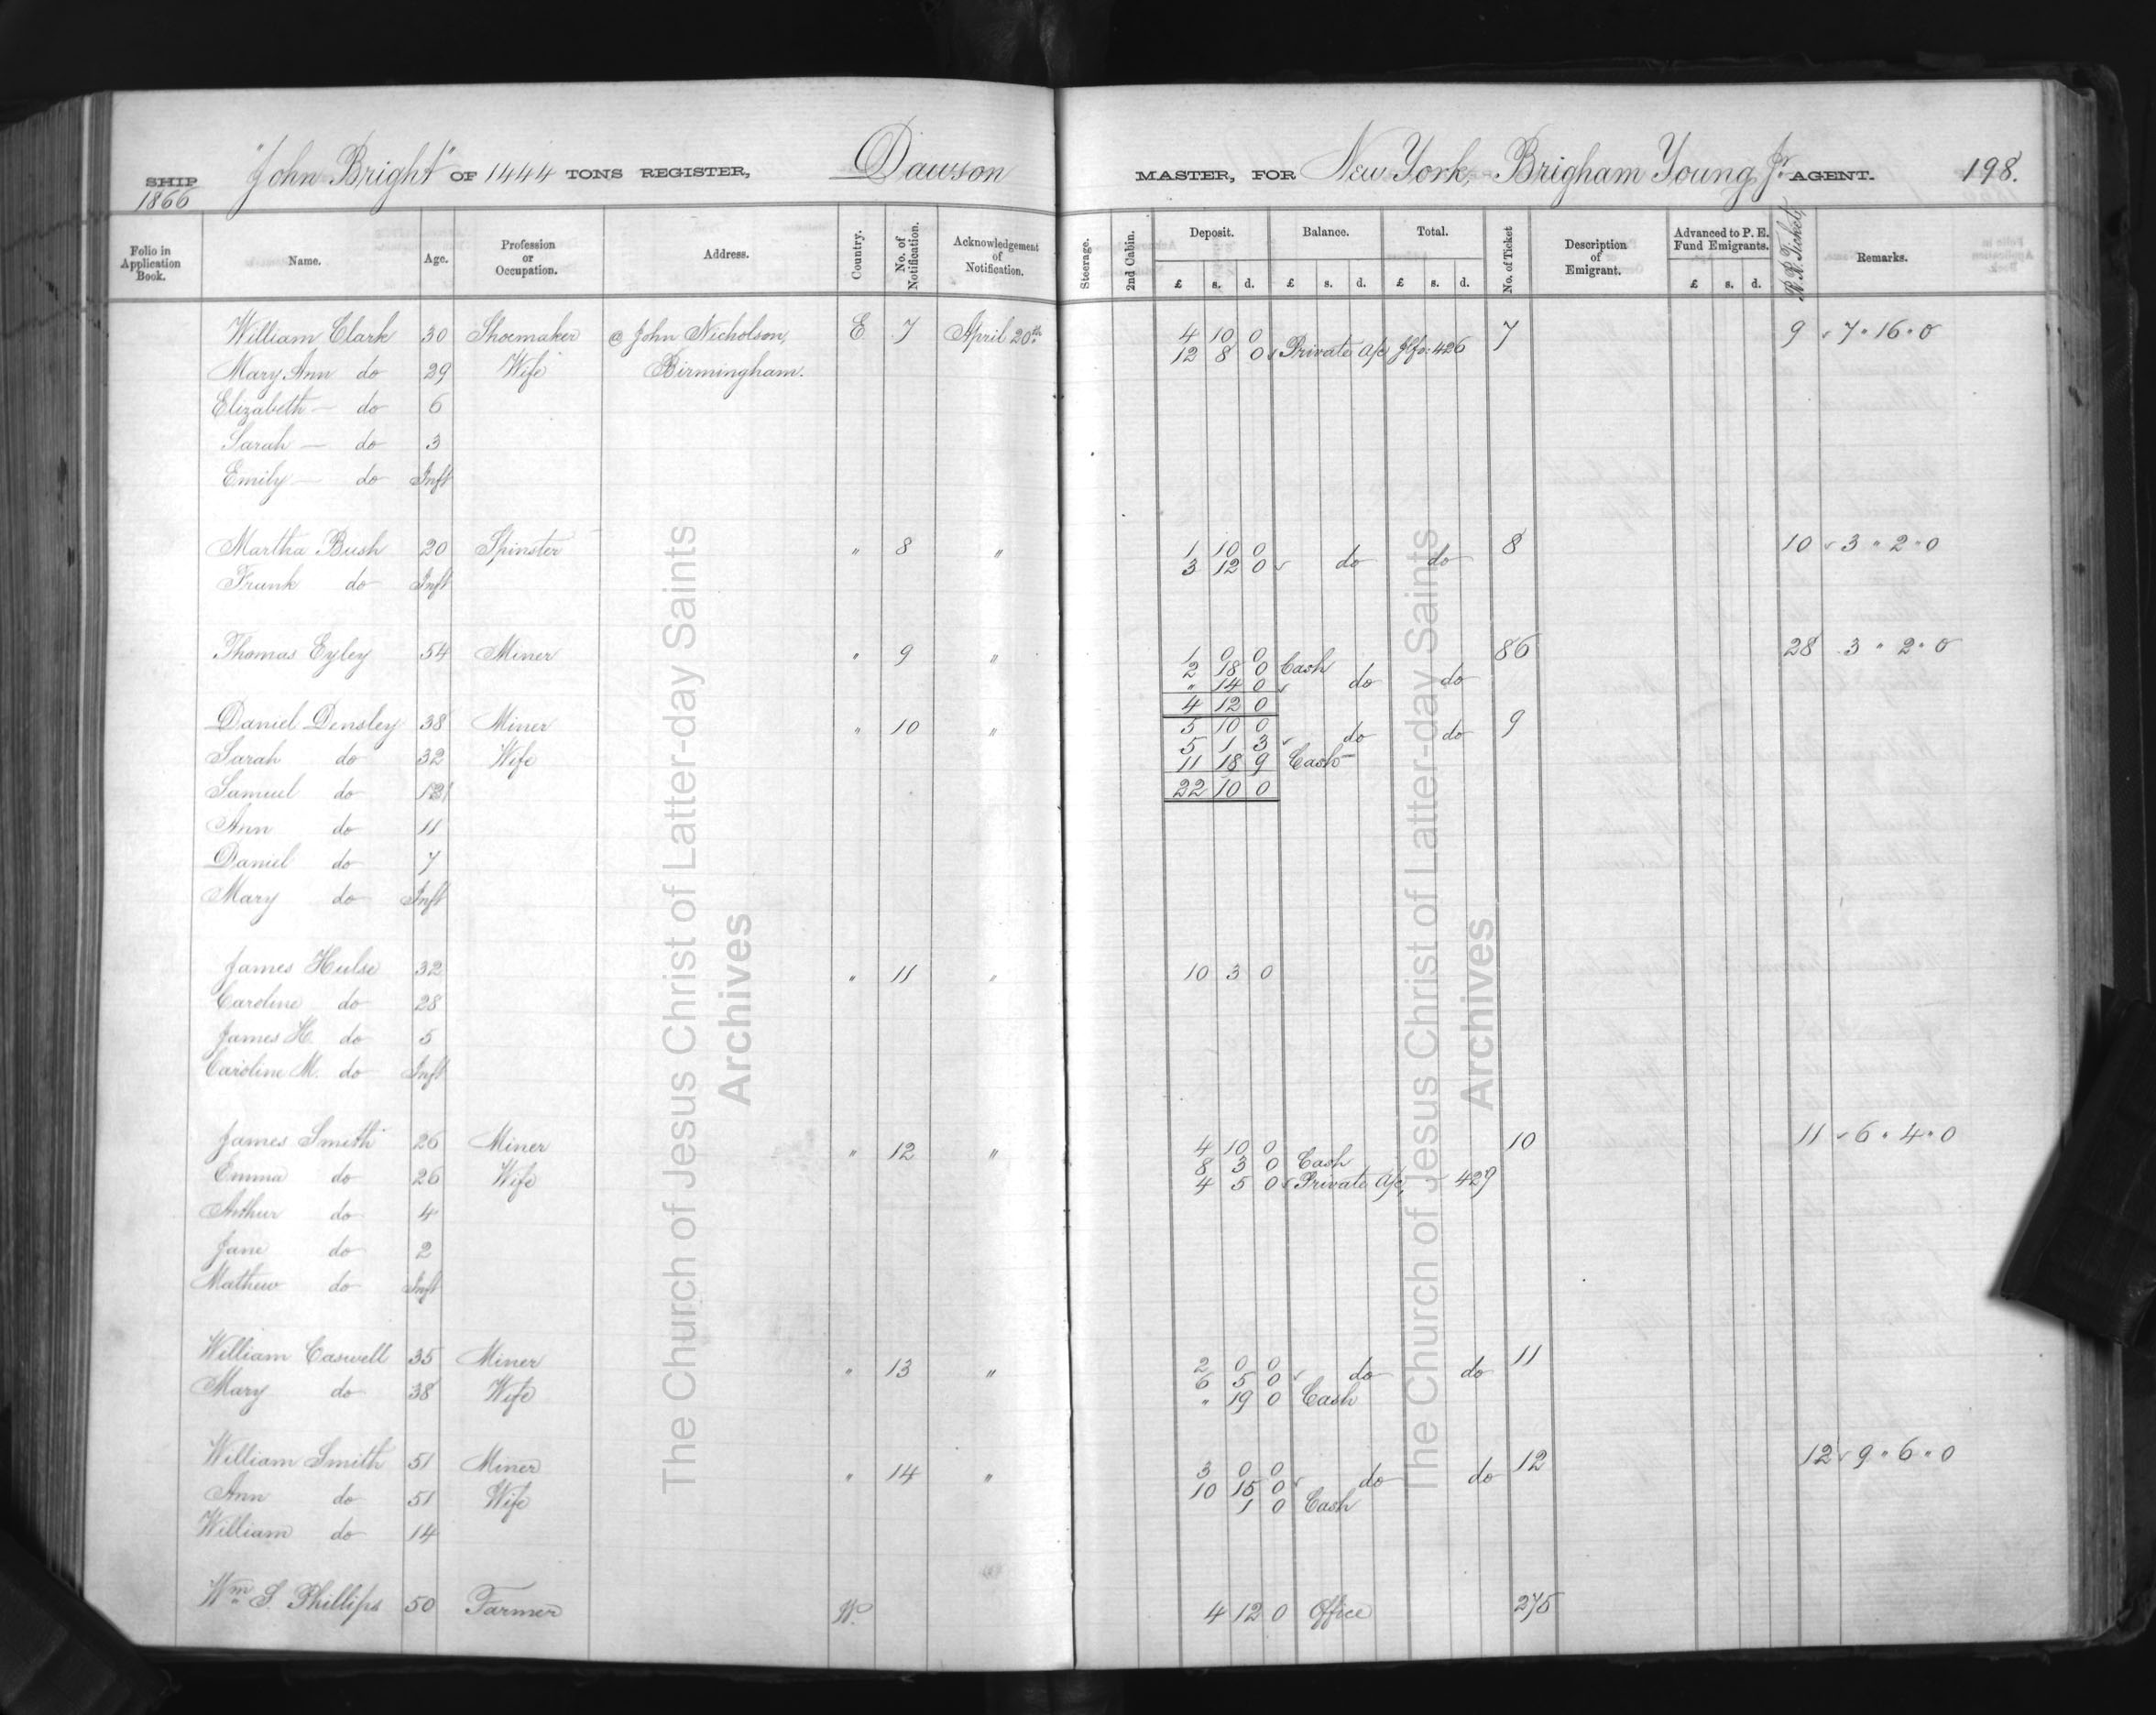 SHIP "John Bright" OF 1444 TONS REGISTER, Dawson MASTER, FOR New York, Brigham Young Jr AGENT. 198.
1866
Folio in Application Book. Name. Age. Profession or Occupation. Address. Country. No. of Notification. Acknowledgement of Notification. Steerage. 2nd Cabin. Deposit. Balance. Total. No. of Ticket Description of Emigrant. Advanced to P. E. Fund Emigrants. R.R. Tickets Remarks.
£ s. d. £ s. d. £ s. d. £ s. d.
William Clark 30 Shoemaker @ John Nicholson, E 7 April 20th 4 10 0 7 9 7 " 16 " 0
12 8 0 Private a/c 426
Mary Ann do 29 Wife Birmingham.
Elizabeth — do 6
Sarah — do 3
Emily — do Inft
Martha Bush 20 Spinster " 8 " 1 10 0 8 10 3 " 2 " 0
3 12 0 do do
Frank do Inft
Thomas Eyley 54 Miner " 9 " 1 0 0 86 28 3 " 2 " 0
2 18 0 Cash
" 14 0 do do
4 12 0
Daniel Densley 38 Miner " 10 " 5 10 0 9
5 1 3 do do
Sarah do 32 Wife 11 18 9 Cash
Samuel do 22 10 0
Ann do 11
Daniel do 7
Mary do Inft
James Hulse 32 " 11 " 10 3 0
Caroline do 28
James H. do 5
Caroline M. do Inft
James Smith 26 Miner " 12 " 4 10 0 10 11 6 " 4 " 0
8 3 0 Cash
Emma do 26 Wife 4 5 0 Private a/c, 429
Arthur do 4
Jane do 2
Mathew do Inft
William Caswell 35 Miner " 13 " 2 0 0 11
6 5 0 do do
Mary do 38 Wife " 19 0 Cash
William Smith 51 Miner " 14 " 3 0 0 12 12 9 " 6 " 0
10 15 0 do do
Ann do 51 Wife 1 0 Cash
William do 14
Wm S. Phillips 50 Farmer W. 4 12 0 Office 275
The Church of Jesus Christ of Latter-day Saints
Archives
The Church of Jesus Christ of Latter-day Saints
Archives